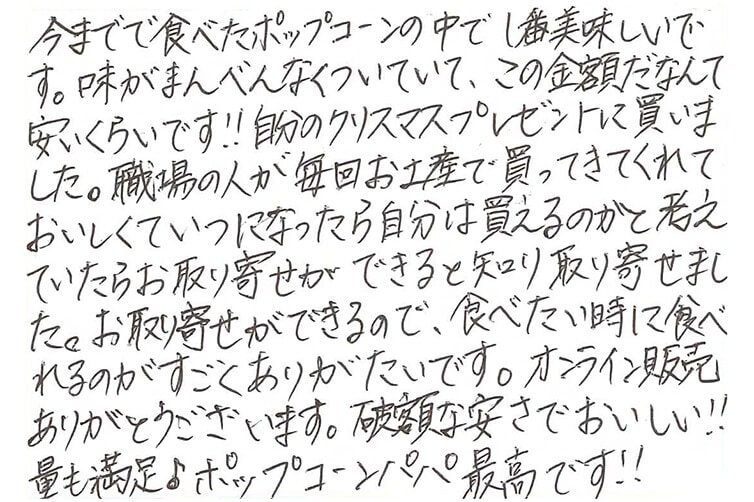 今までで食べたポップコーンの中で1番美味しいで
す。味がまんべんなくついていて、この金額だなんて
安いくらいです!!自分のクリスマスプレゼントに買いま
した。職場の人が毎回お土産で買ってきてくれて
おいしくていつになったら自分は買えるのかと考え
ていたらお取り寄せができると知り取り寄せまし
た。お取り寄せができるので、食べたい時に食べ
れるのがすごくありがたいです。オンライン販売
ありがとうございます。破額な安さでおいしい!!
量も満足♪ポップコーンパパ最高です!!